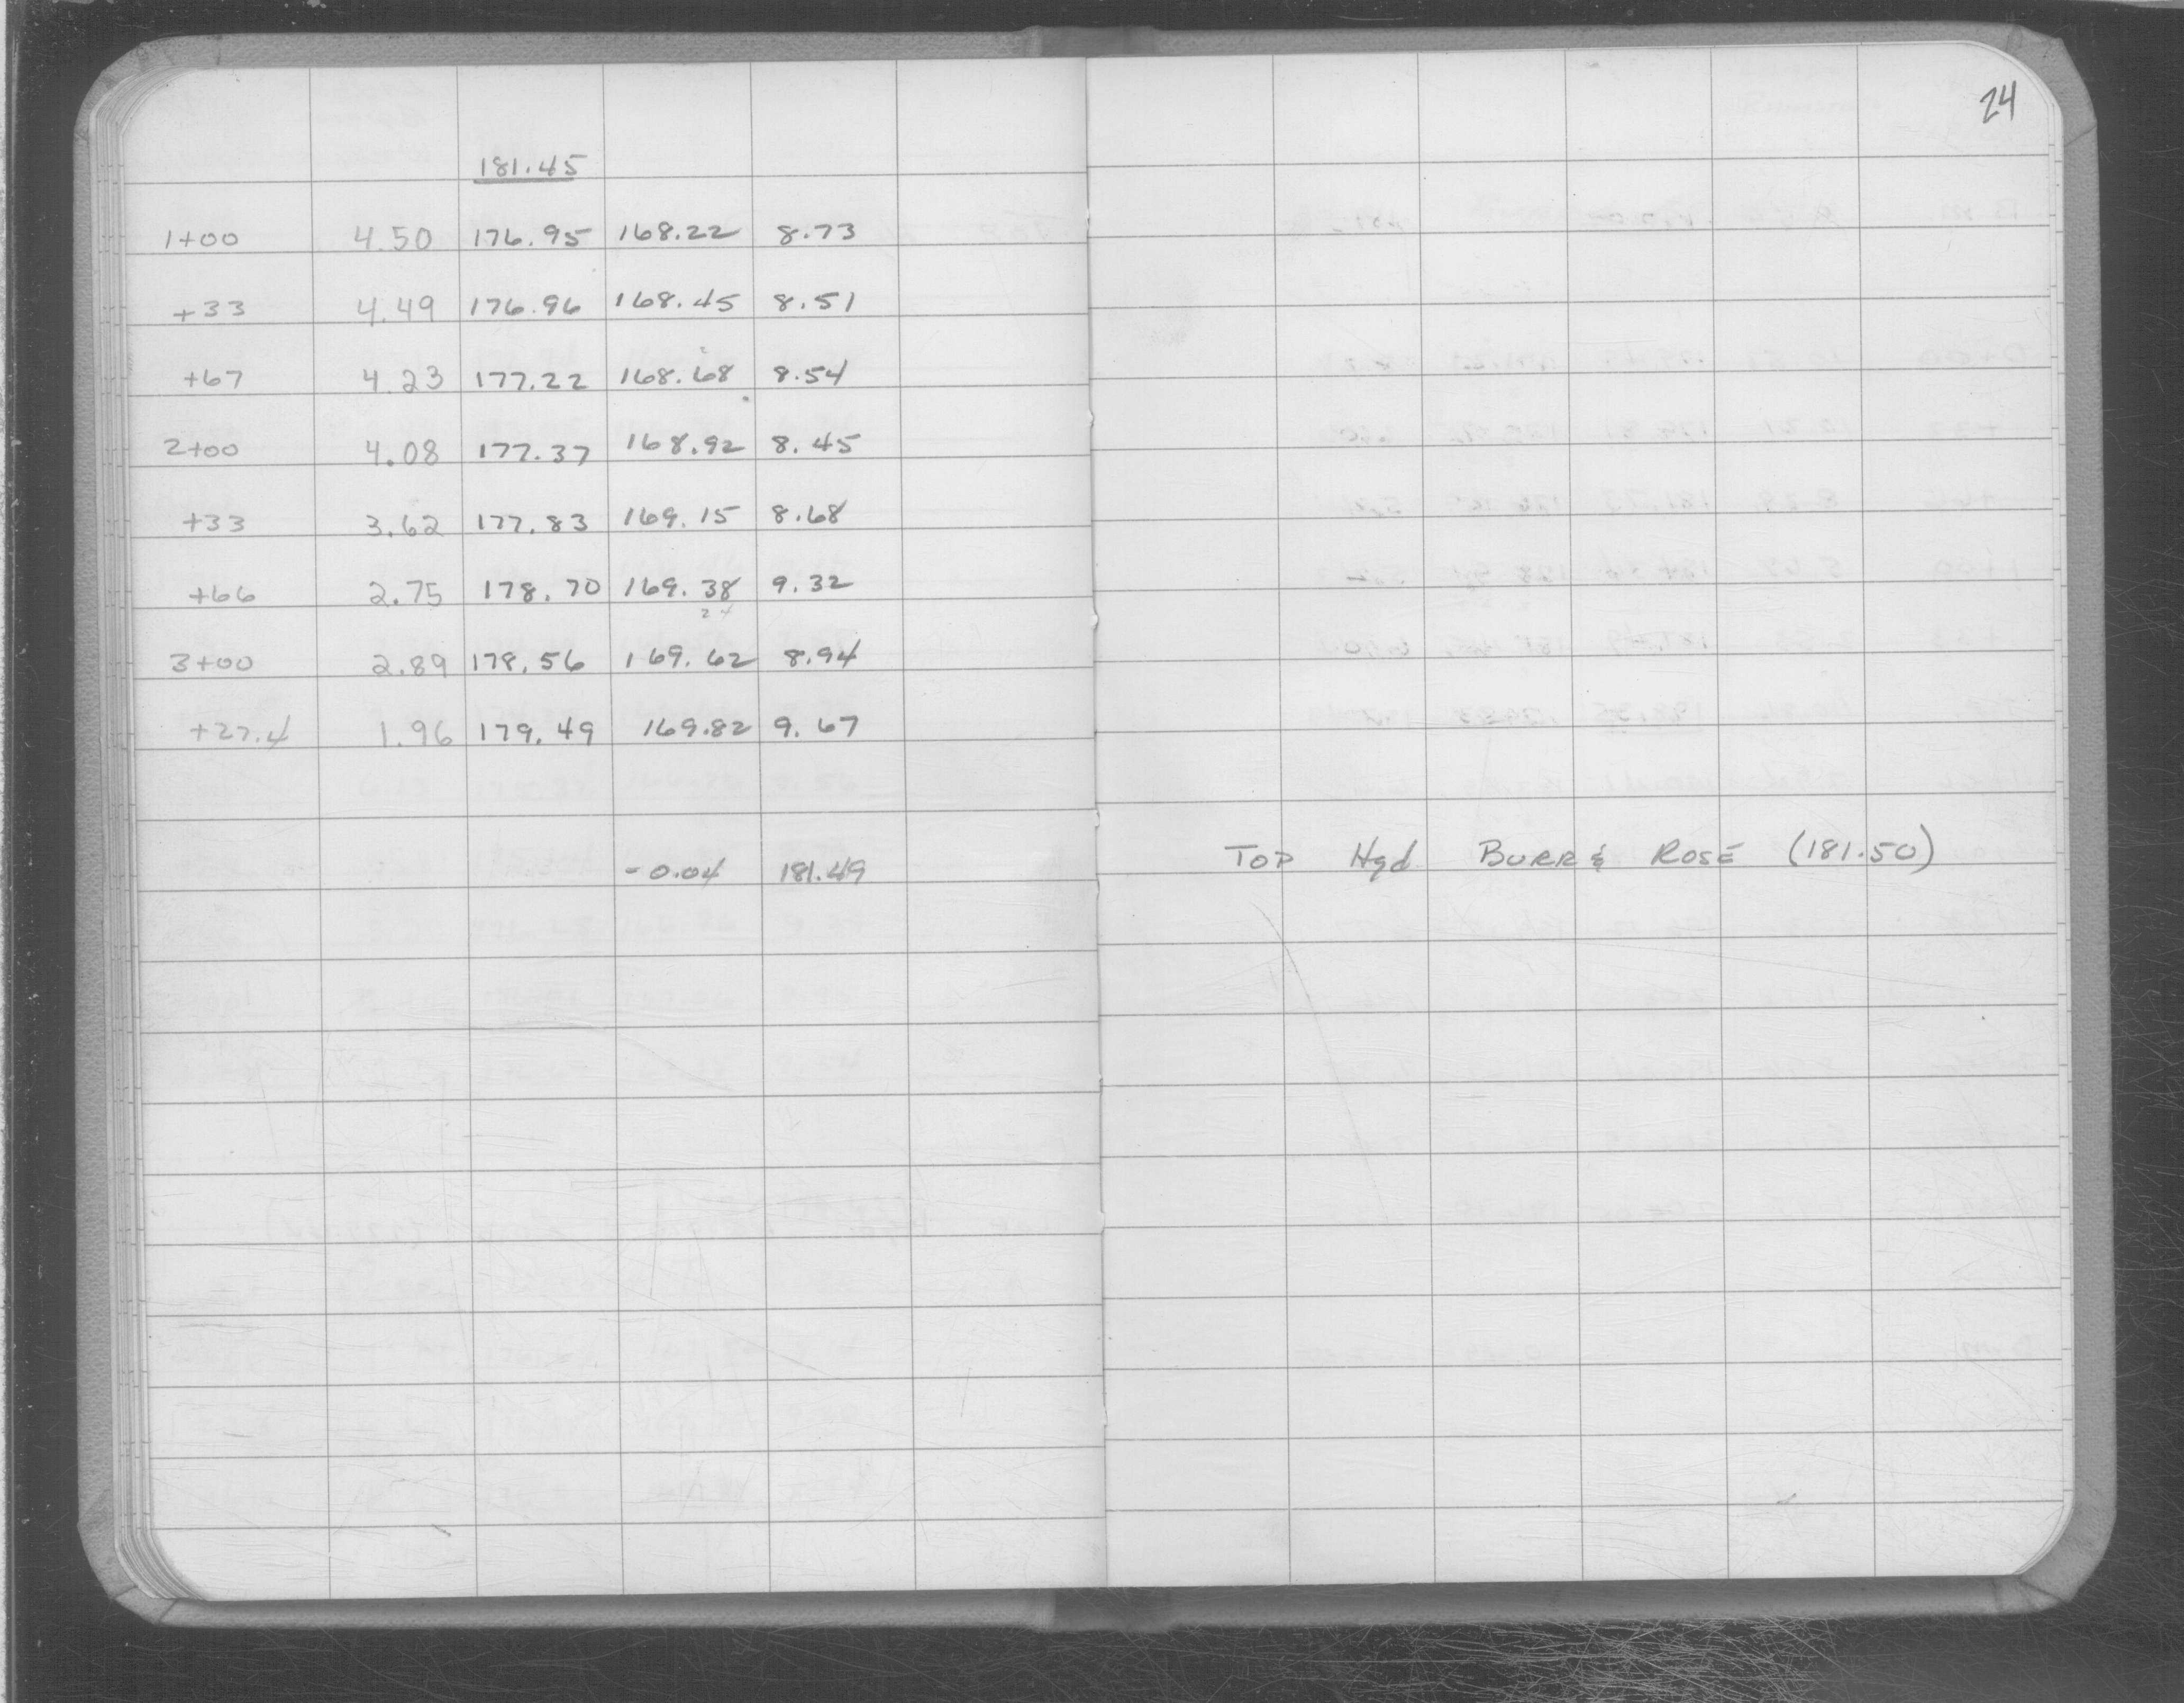 24
181.45
1+00 4.50 176.95 168.22 8.73
+33 4.49 176.96 168.45 8.51
+67 4.23 177.22 168.68 8.54
2+00 4.08 177.37 168.92 8.45
+33 3.62 177.83 169.15 8.68
+66 2.75 178.70 169.38 9.32
3+00 2.89 178.56 169.62 8.94
+27.4 1.96 179.49 169.82 9.67
-0.04 181.49 TOP Hyd BURR & ROSE (181.50)